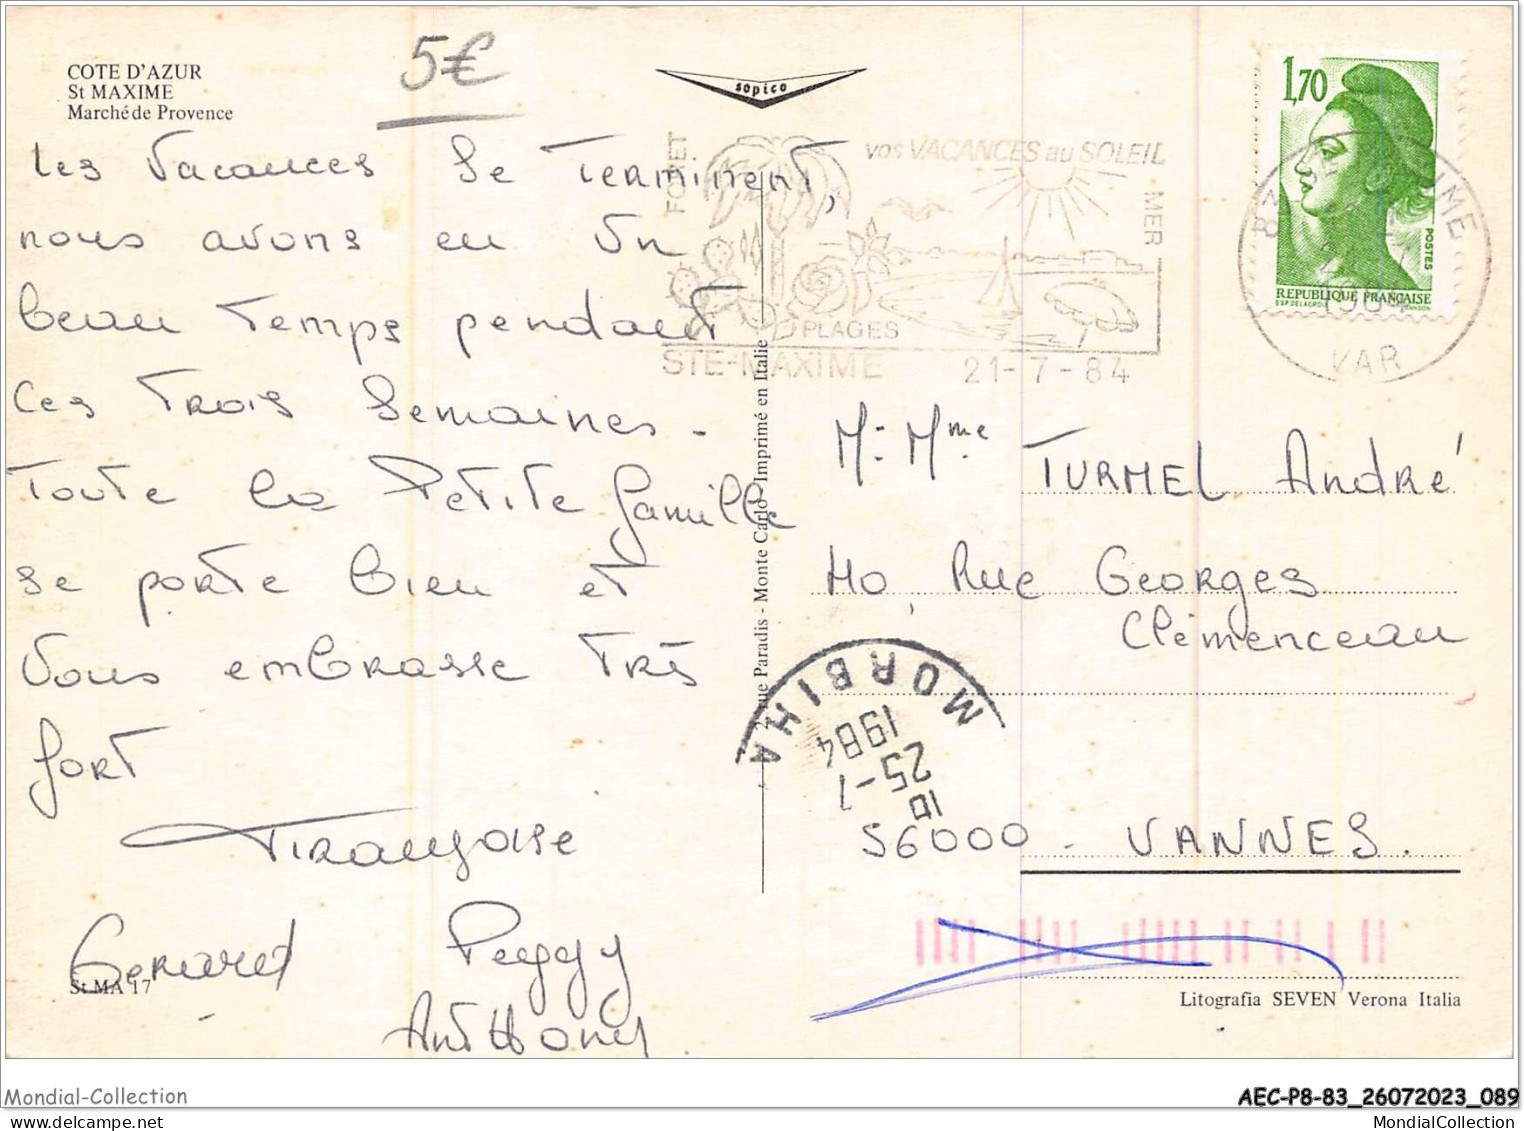 COTE D'AZUR
St MAXIME
Marché de Provence
5€
sopico
1,70
POSTES
REPUBLIQUE FRANÇAISE
FORET
vos VACANCES au SOLEIL
MER
PLAGES
STE-MAXIME 21-7-84
VAR
Les vacances se terminent,
nous avons eu un
beau temps pendant
ces trois semaines -
toute la petite famille
se porte bien et
vous embrasse très
fort
Françoise
Gerard Peggy
Anthony
St MA 17
rue Paradis - Monte Carlo - Imprimé en Italie
M. Mme TURMEL André
40, Rue Georges
Clémenceau
56000 - VANNES.
MORBIHA
25-7
1984
Litografia SEVEN Verona Italia
Mondial-Collection
AEC-P8-83_26072023_089
https://www.delcampe.net/fr/collections/boutique/Mondial-Collection
MondialCollection